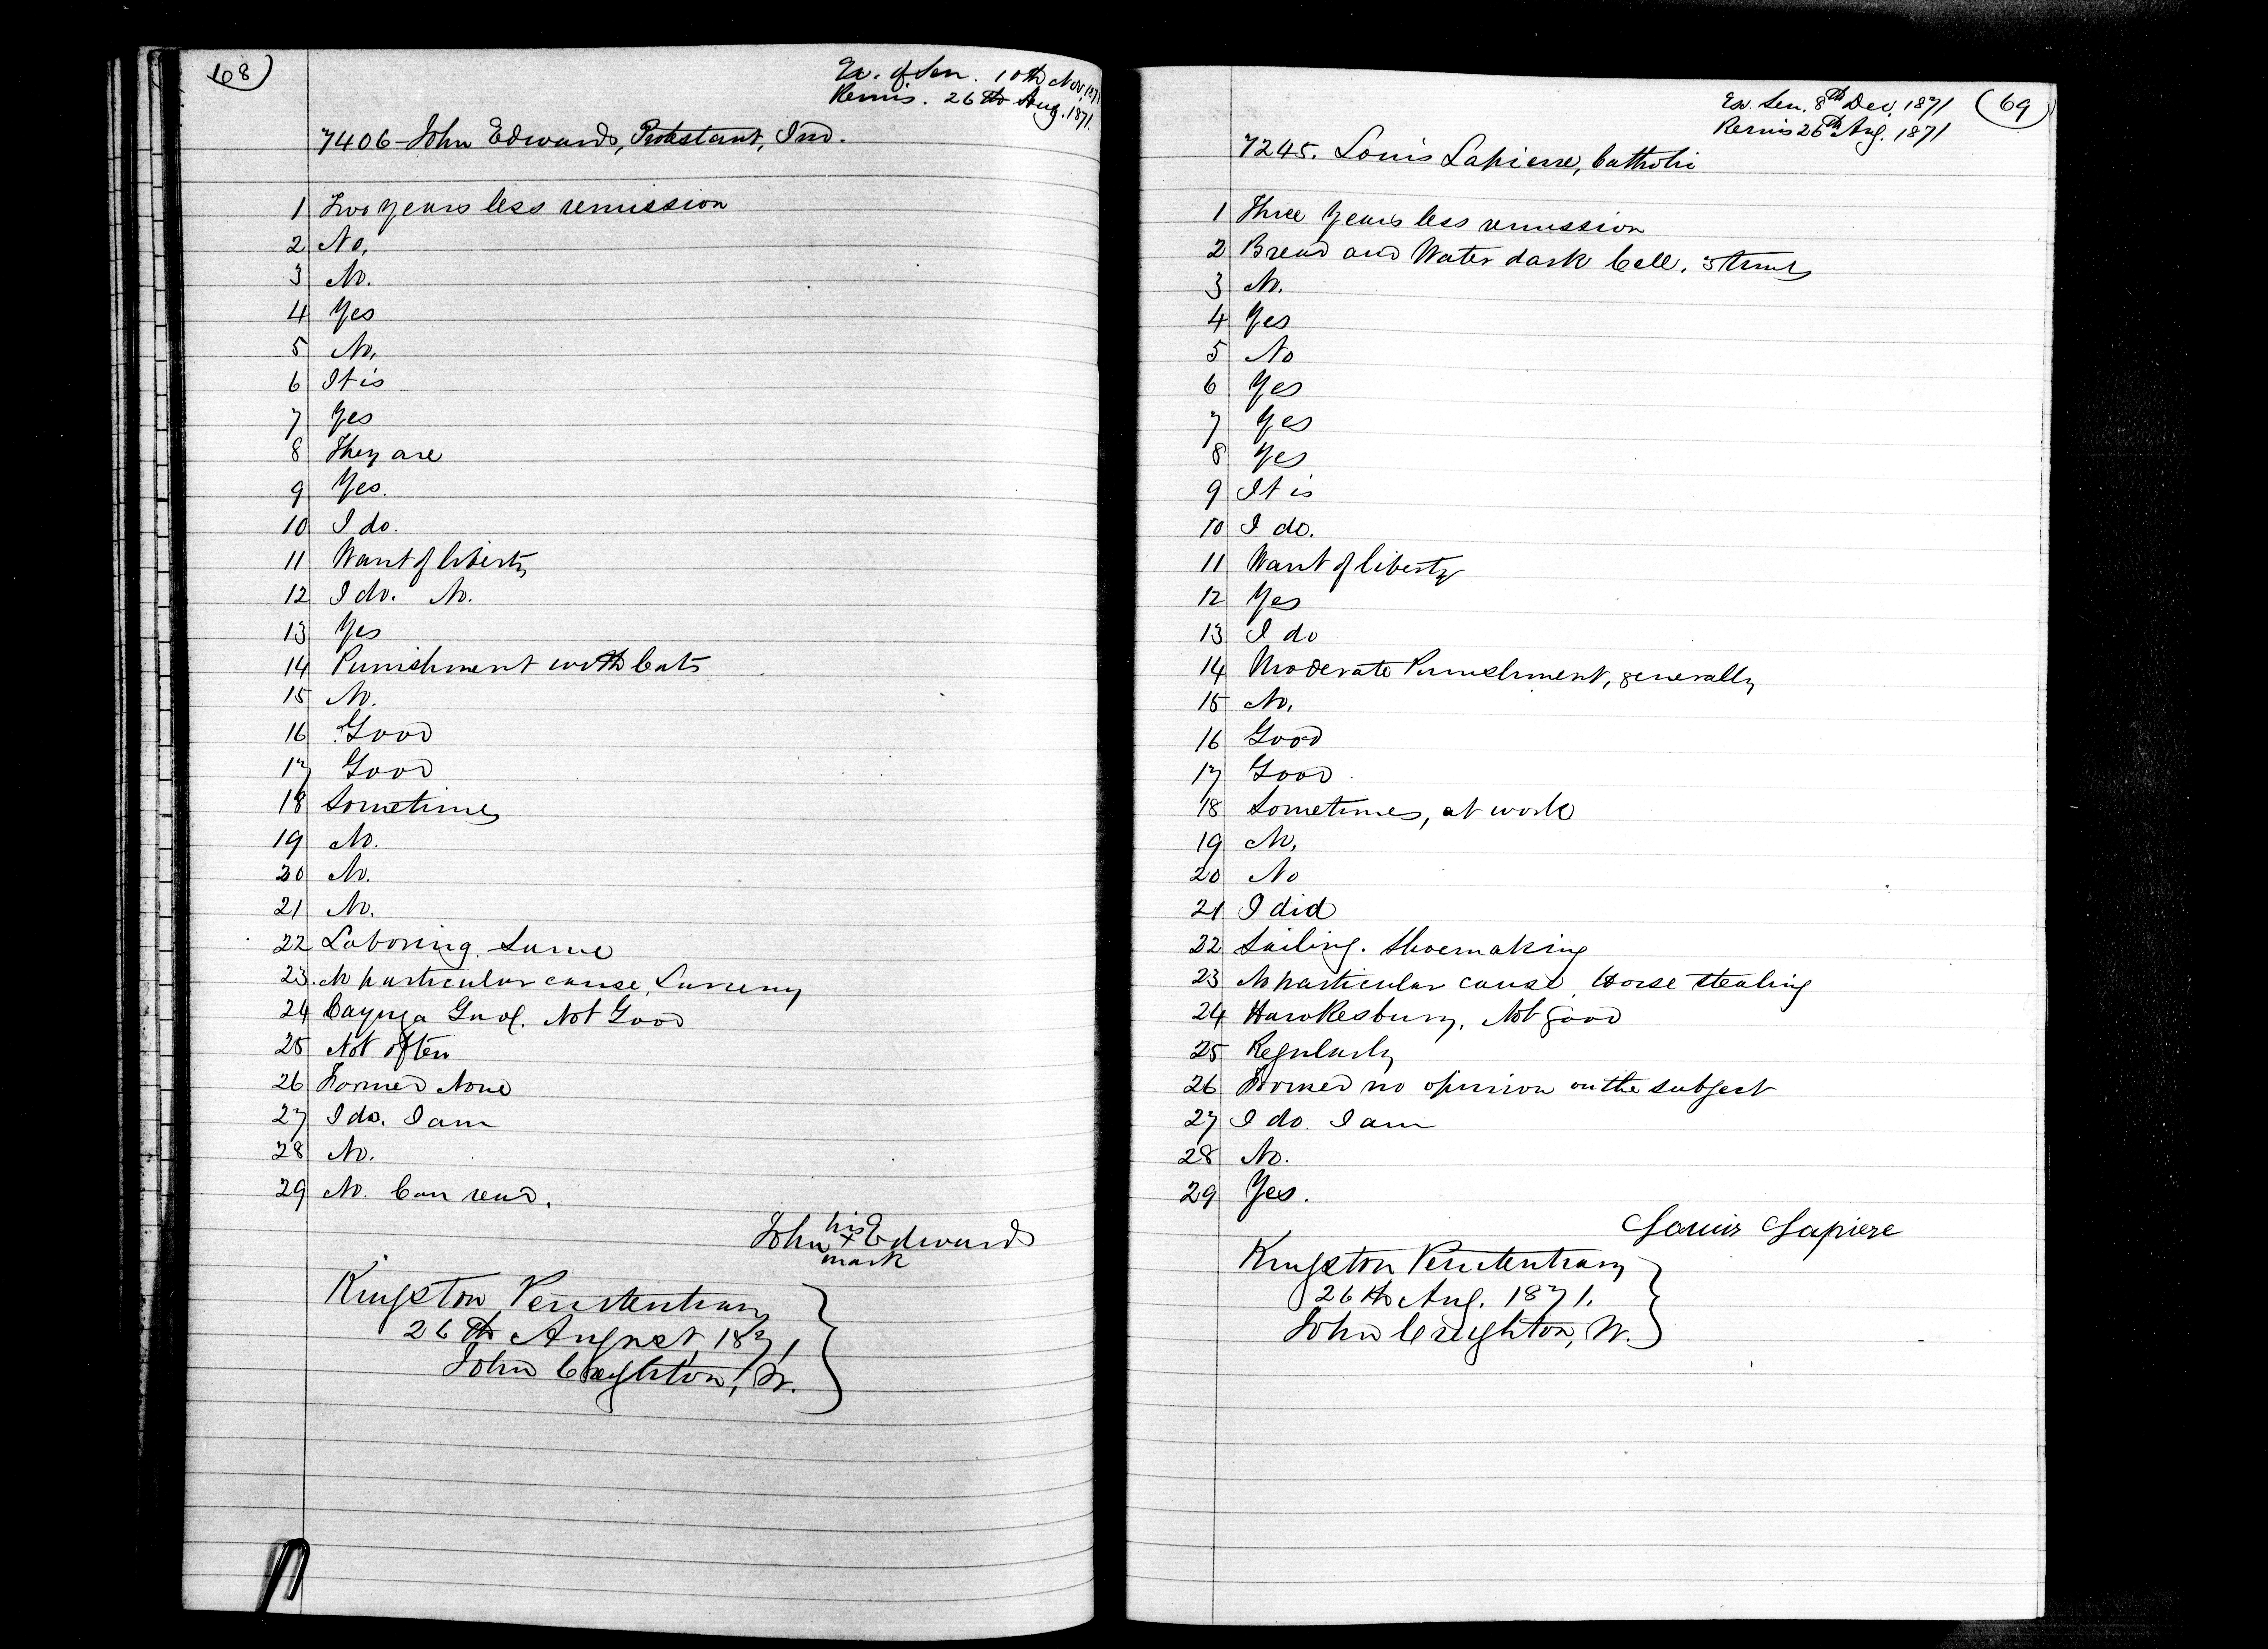 68
Ex. of Sen. 10th Nov. 1871
Remis. 26th Aug. 1871.
7406 - John Edwards, Protestant, Ind.
1 Two years less remission
2 No,
3 No.
4 Yes
5 No,
6 It is
7 Yes
8 They are
9 Yes.
10 I do.
11 Want of liberty
12 I do. No.
13 Yes
14 Punishment with Cats
15 No.
16 Good
17 Good
18 Sometimes
19 No.
20 No.
21 No.
22 Laboring. Same
23. No particular cause, Larceny
24 Cayuga Gaol. Not Good
25 Not often
26 Formed None
27 I do. I am
28 No.
29 No. Can read.
John his x mark Edwards
Kingston Penitentiary
26th August 1871
John Creighton, W.
69
Ex. Sen. 8th Dec. 1871
Remis 26th Aug. 1871
7245. Louis Lapierre, Catholic
1 Three Years less remission
2 Bread and Water dark Cell. 3 times
3 No.
4 Yes
5 No
6 Yes
7 Yes
8 Yes
9 It is
10 I do.
11 Want of liberty
12 Yes
13 I do
14 Moderate Punishment, generally
15 No,
16 Good
17 Good
18 Sometimes, at work
19 No,
20 No
21 I did
22 Sailing. Shoemaking
23 No particular cause. Horse stealing
24 Hawkesbury, Not good
25 Regularly
26 Formed no opinion on the subject
27 I do. I am
28 No.
29 Yes.
Louis Lapiere
Kingston Penitentiary
26th Aug. 1871.
John Creighton, W.